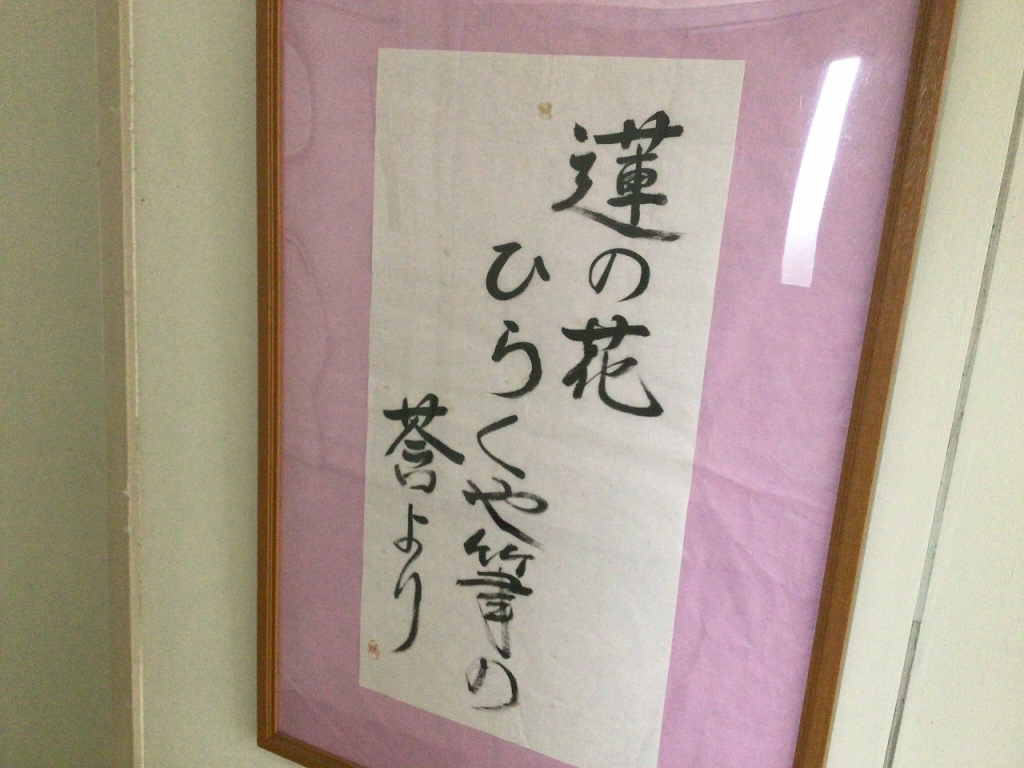 蓮の花
ひらくや筆の
莟より